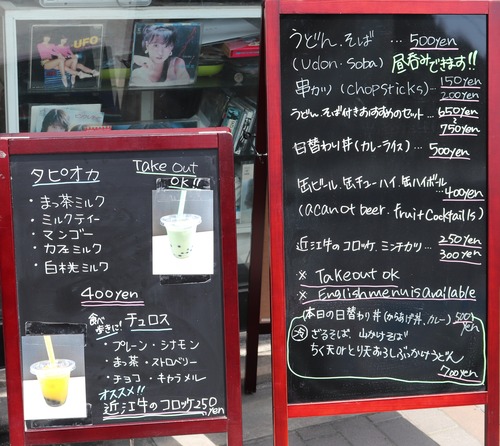 UFO
タピオカ
Take out
OK!!
・まっ茶ミルク
・ミルクティー
・マンゴー
・カフェミルク
・白桃ミルク
400yen
食べ歩きに! チュロス
・プレーン・シナモン
・まっ茶・ストロベリー
・チョコ・キャラメル
オススメ!!
近江牛のコロッケ250yen
うどん.そば … 500yen
(Udon・Soba) 昼呑みできます!!
串カツ(chopsticks)… 150yen
200yen
うどん.そば付きおすすめのセット… 650yen
〜
750yen
日替わり丼(カレーライス)… 500yen
缶ビール.缶チューハイ.缶ハイボール
…400yen
(acanot beer. fruit cocktails)
近江牛のコロッケ.ミンチカツ… 250yen
300yen
※ Takeout ok
※ English menu is available
本日の日替わり丼(からあげ丼、カレー) 500yen
冷 ざるそば、山かけそば
ちく天のとり天おろしぶっかけうどん
700yen